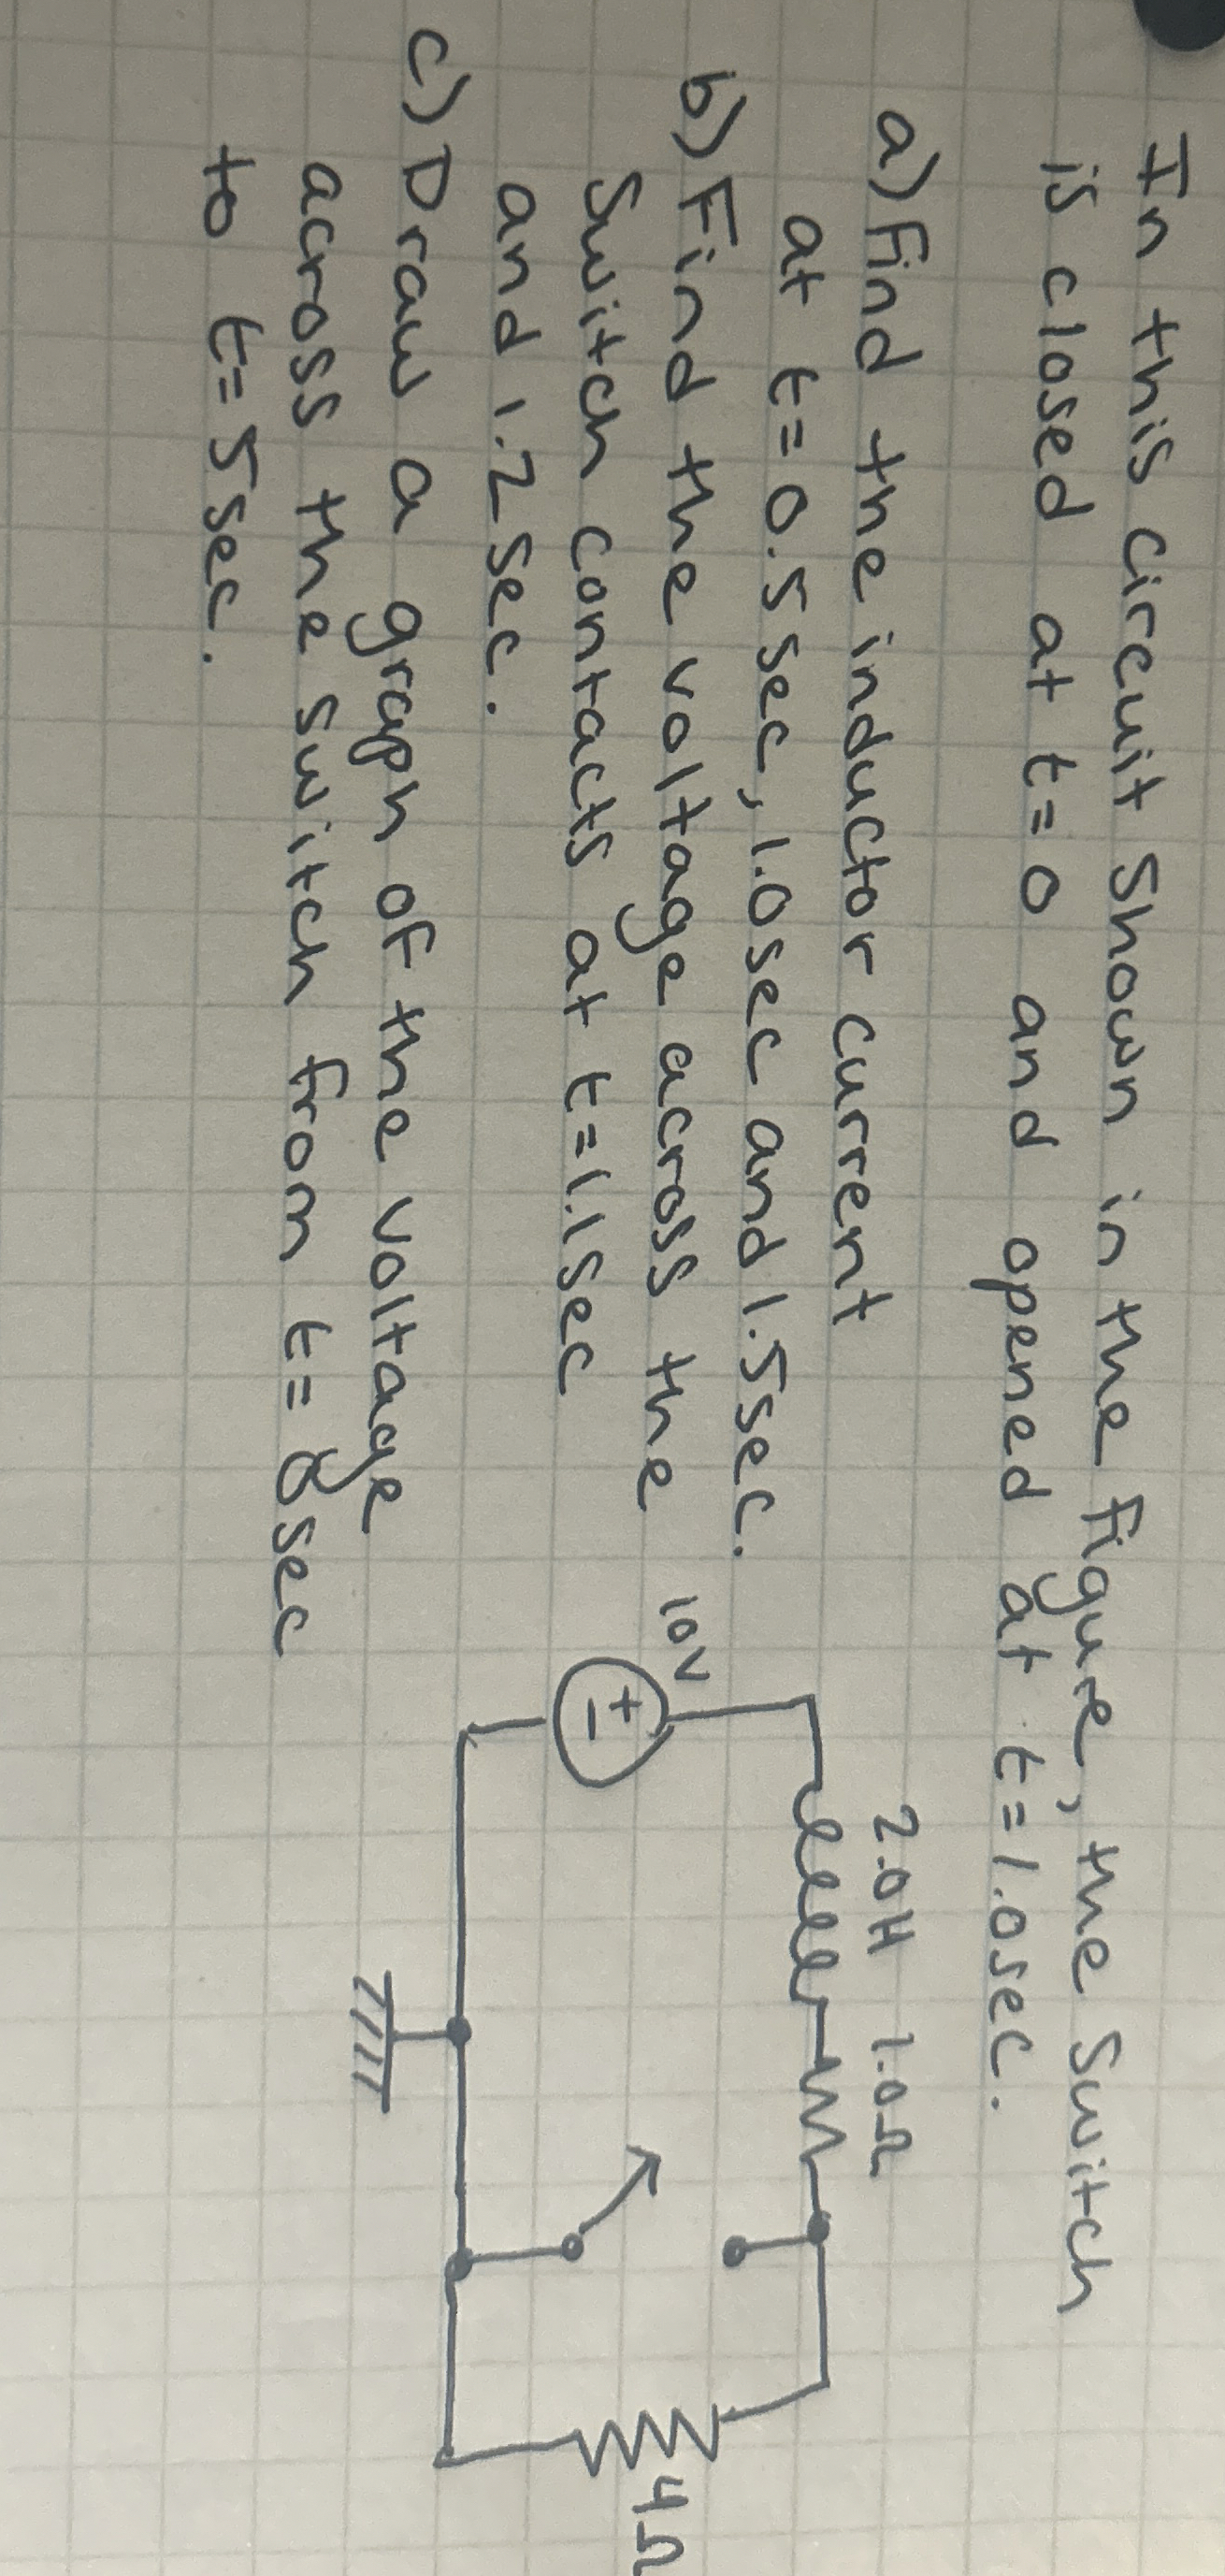 In this circuit shown in the figure, the switch
is closed at t=0 and opened at t=1.0sec.
a) Find the inductor current
at t=0.5sec, 1.0sec and 1.5sec.
b) Find the voltage across the
switch contacts at t=1.1sec
and 1.2sec.
c) Draw a graph of the voltage
across the switch from t=0sec
to t=5sec.
2.0H 1.0Ω
10V
+
-
4Ω